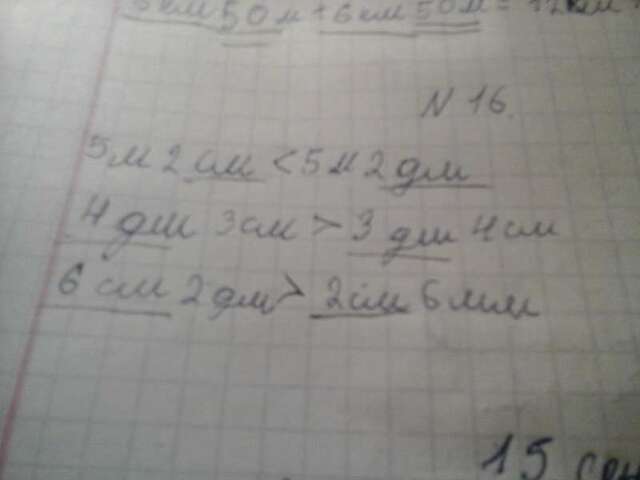 6 км 50 м + 6 км 50 м = 12 км
N 16.
5 м 2 см < 5 м 2 дм
4 дм 3 см > 3 дм 4 см
6 см 2 дм > 2 см 6 мм
15